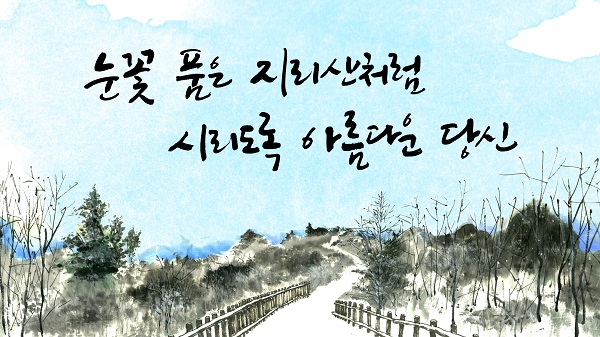 눈꽃 품은 지리산처럼
시리도록 아름다운 당신